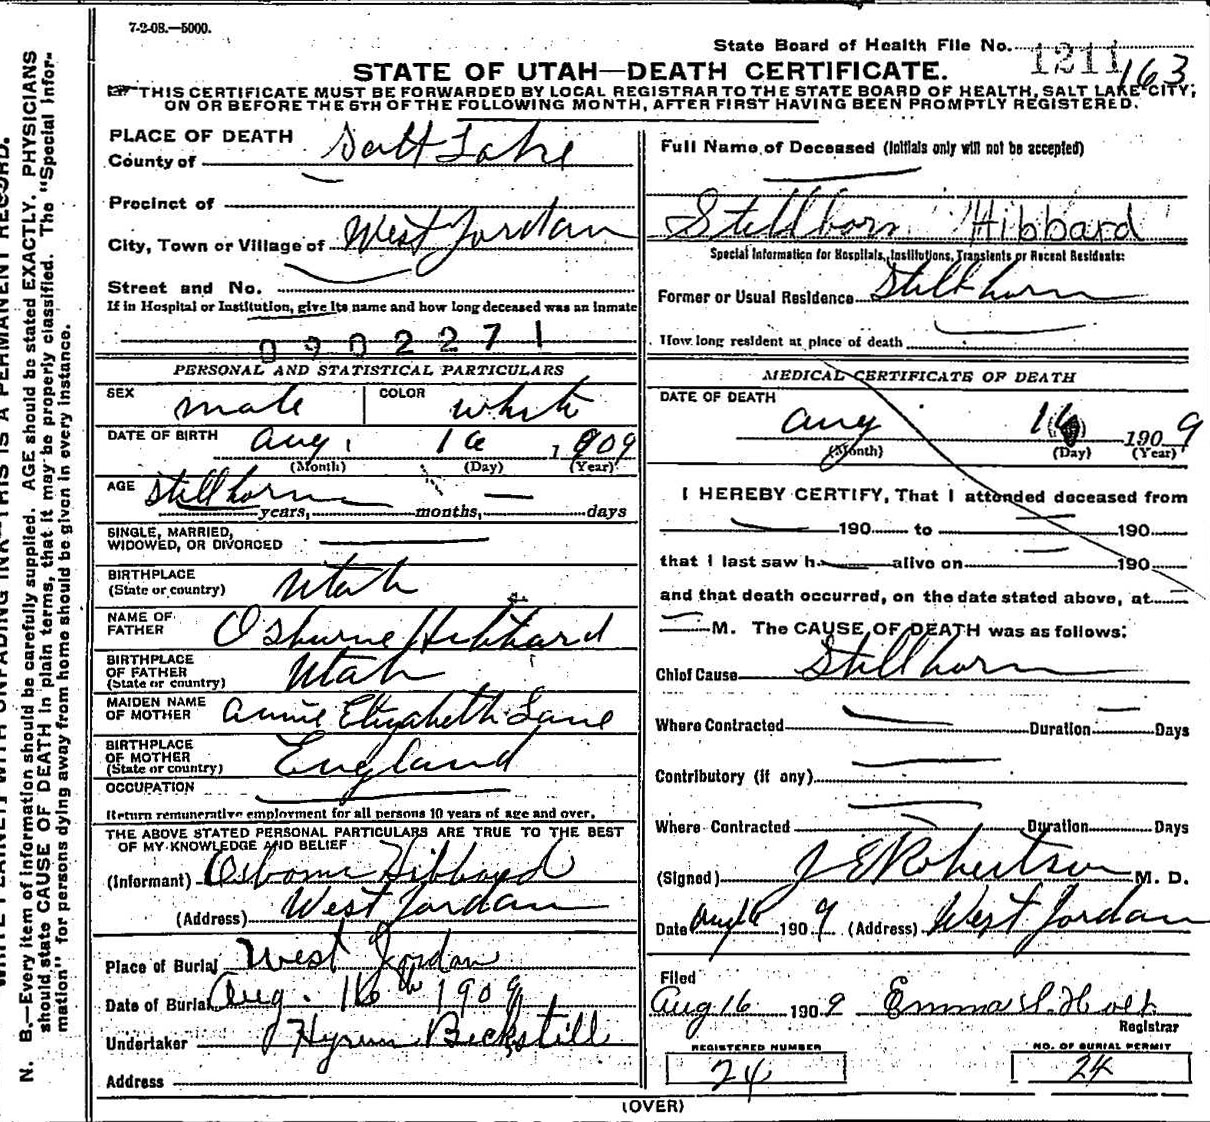 7-2-08.—5000.
State Board of Health File No. 1211 163
STATE OF UTAH—DEATH CERTIFICATE.
THIS CERTIFICATE MUST BE FORWARDED BY LOCAL REGISTRAR TO THE STATE BOARD OF HEALTH, SALT LAKE CITY,
ON OR BEFORE THE 5TH OF THE FOLLOWING MONTH, AFTER FIRST HAVING BEEN PROMPTLY REGISTERED.
PLACE OF DEATH
County of Salt Lake
Precinct of
City, Town or Village of West Jordan
Street and No.
If in Hospital or Institution, give its name and how long deceased was an inmate
0902271
PERSONAL AND STATISTICAL PARTICULARS
SEX male COLOR white
DATE OF BIRTH Aug. 16, 1909
(Month) (Day) (Year)
AGE Stillborn
years, months, days
SINGLE, MARRIED,
WIDOWED, OR DIVORCED
BIRTHPLACE
(State or country) Utah
NAME OF
FATHER Osburne Hibbard
BIRTHPLACE
OF FATHER
(State or country) Utah
MAIDEN NAME
OF MOTHER Annie Elizabeth Lane
BIRTHPLACE
OF MOTHER
(State or country) England
OCCUPATION
Return remunerative employment for all persons 10 years of age and over.
THE ABOVE STATED PERSONAL PARTICULARS ARE TRUE TO THE BEST
OF MY KNOWLEDGE AND BELIEF
(Informant) Osborne Hibbard
(Address) West Jordan
Place of Burial West Jordan
Date of Burial Aug. 16th 1909
Undertaker Hyrum Beckstill
Address
Full Name of Deceased (Initials only will not be accepted)
Stillborn Hibbard
Special Information for Hospitals, Institutions, Transients or Recent Residents:
Former or Usual Residence Stillborn
How long resident at place of death
MEDICAL CERTIFICATE OF DEATH
DATE OF DEATH
Aug 16 1909
(Month) (Day) (Year)
I HEREBY CERTIFY, That I attended deceased from
190 to 190
that I last saw h alive on 190
and that death occurred, on the date stated above, at
M. The CAUSE OF DEATH was as follows:
Chief Cause Stillborn
Where Contracted Duration Days
Contributory (if any)
Where Contracted Duration Days
(Signed) J E Robertson M. D.
Date Aug 16 1909 (Address) West Jordan
Filed
Aug 16 1909 Emma S. Holt
Registrar
REGISTERED NUMBER
24
NO. OF BURIAL PERMIT
24
(OVER)
N. B.—Every item of information should be carefully supplied. AGE should be stated EXACTLY. PHYSICIANS
should state CAUSE OF DEATH in plain terms, that it may be properly classified. The "Special Infor-
mation" for persons dying away from home should be given in every instance.
THIS IS A PERMANENT RECORD.